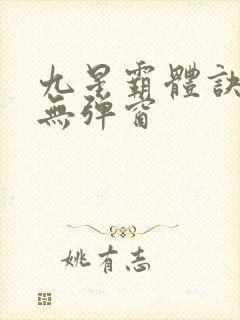 九星霸體訣
無彈窗
姚有志